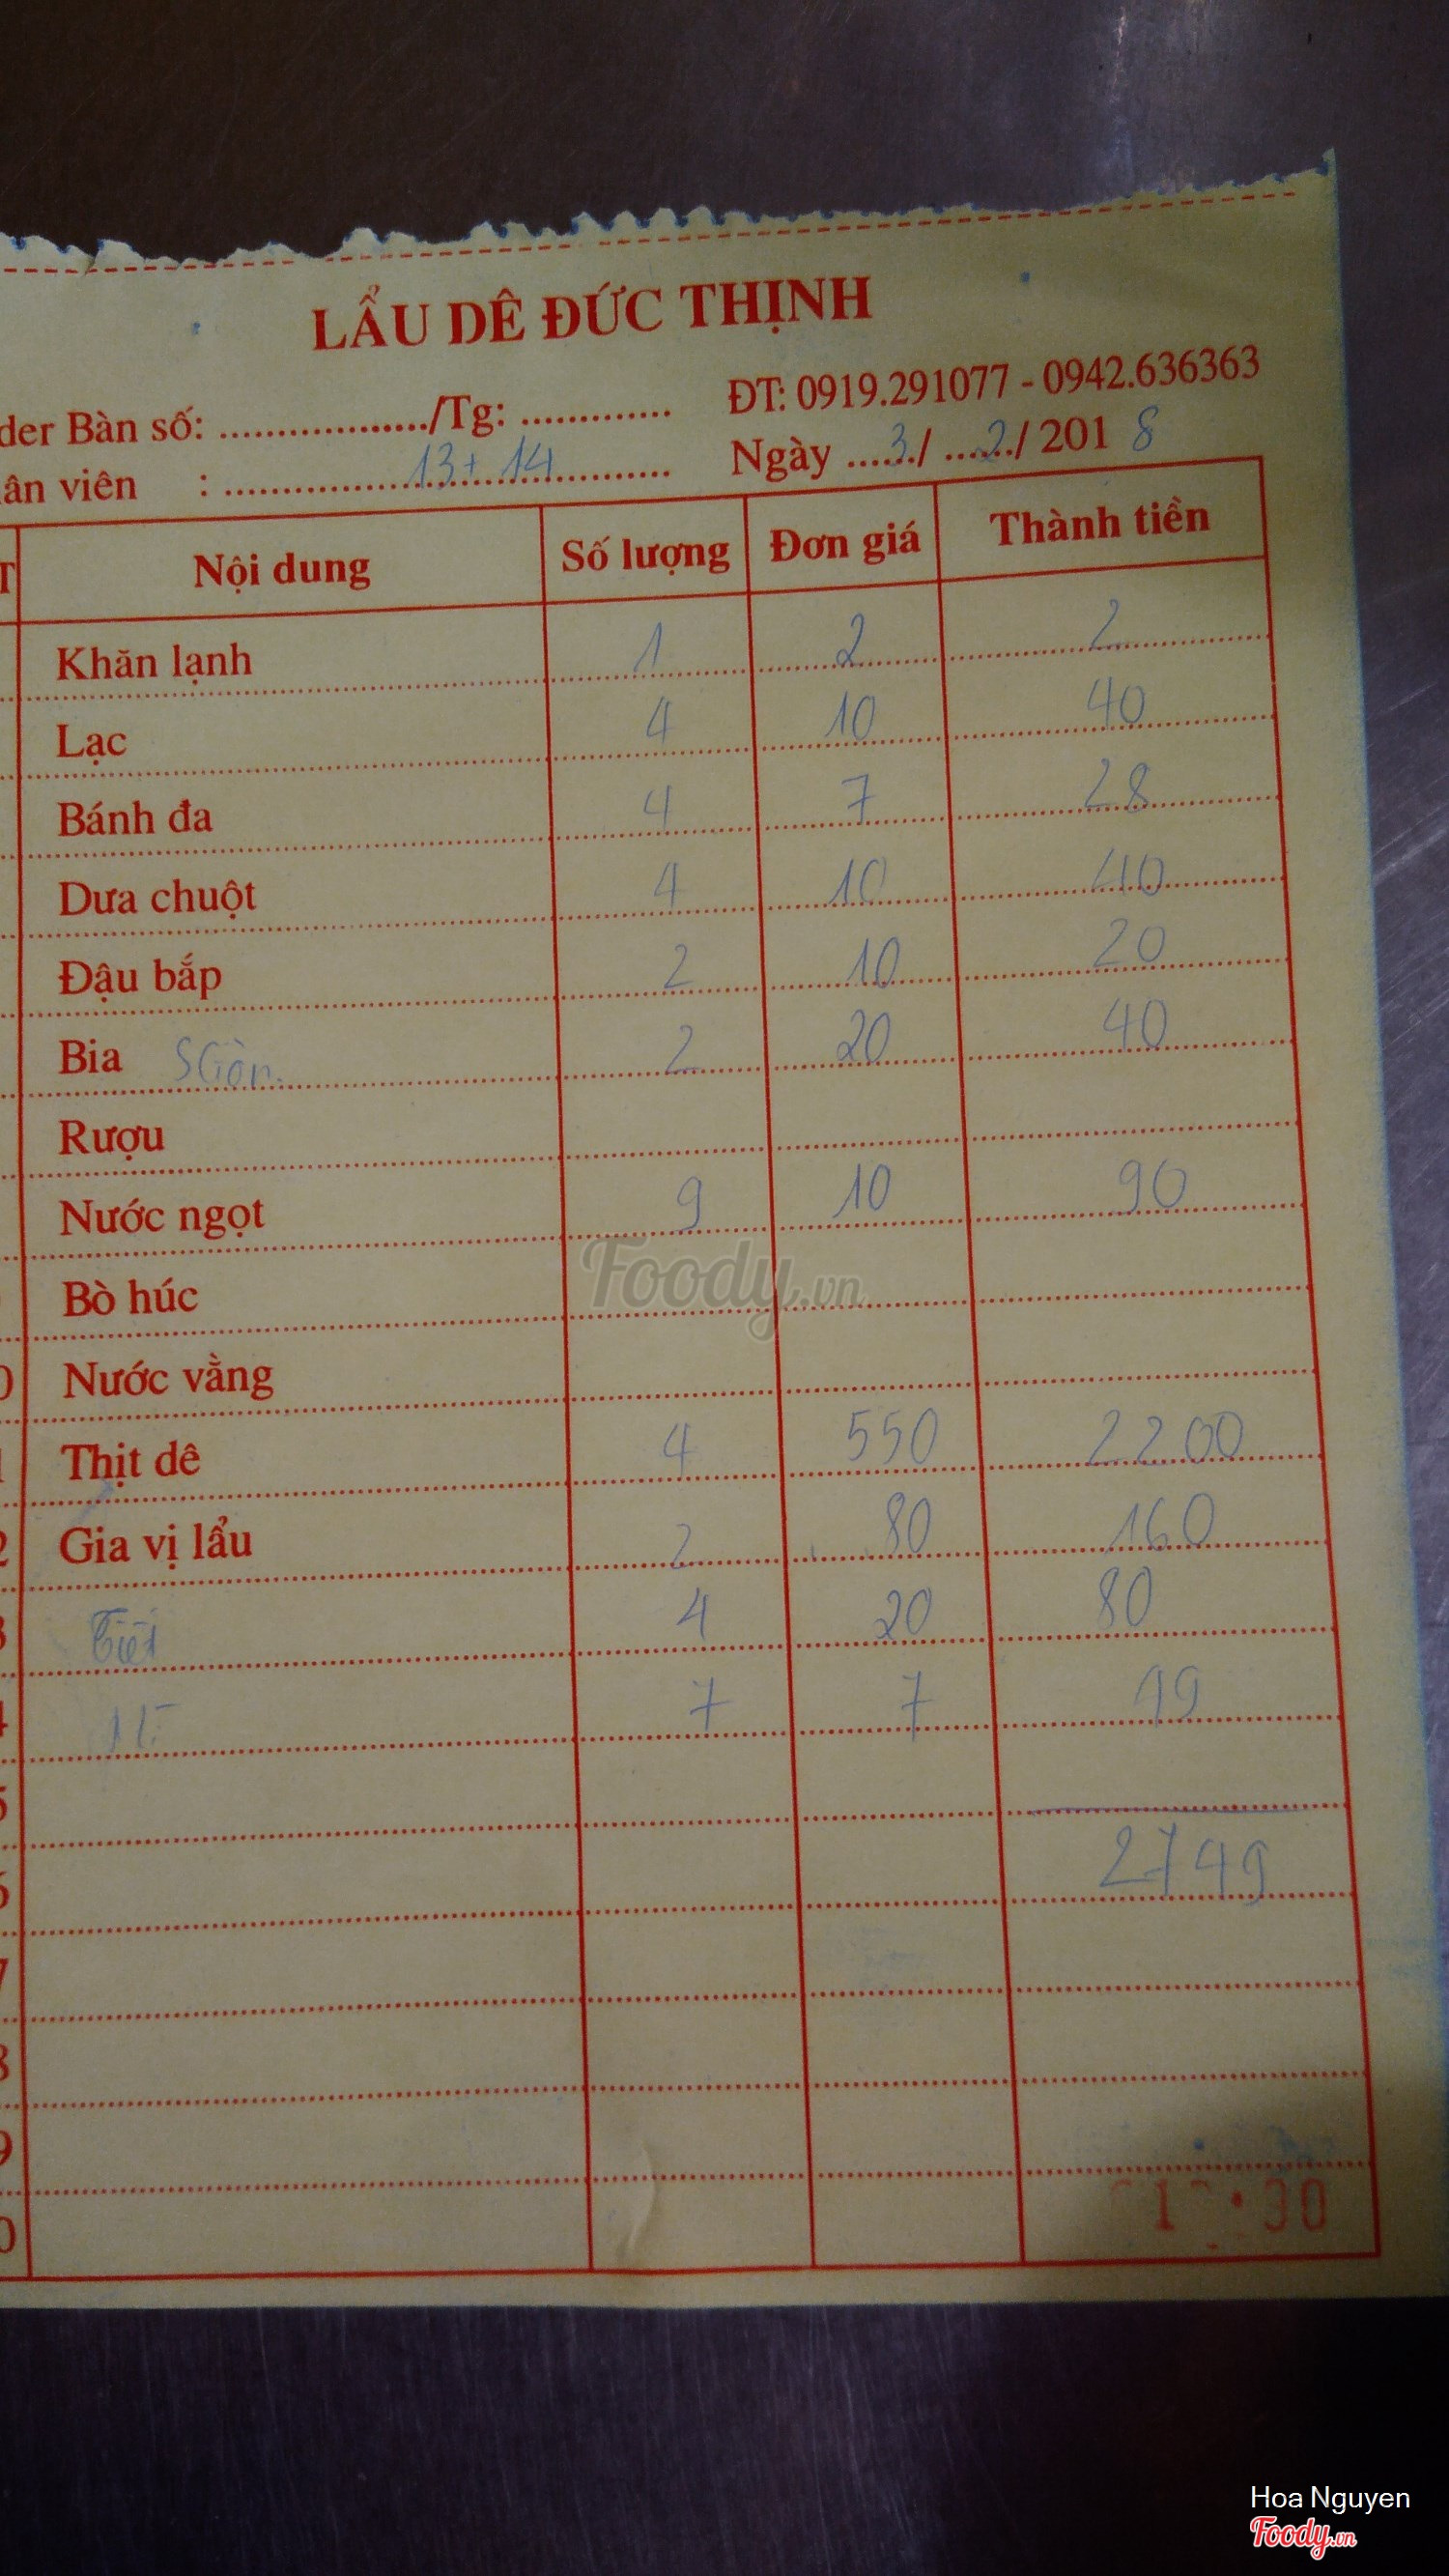 LẨU DÊ ĐỨC THỊNH
der Bàn số: ................../Tg: ............. ĐT: 0919.291077 - 0942.636363
ân viên : 13+ 14 Ngày 3/ 2/ 2018
T Nội dung Số lượng Đơn giá Thành tiền
Khăn lạnh 1 2 2
Lạc 4 10 40
Bánh đa 4 7 28
Dưa chuột 4 10 40
Đậu bắp 2 10 20
Bia SGòn 2 20 40
Rượu
Nước ngọt 9 10 90
Bò húc
0 Nước vằng
1 Thịt dê 4 550 2200
2 Gia vị lẩu 2 80 160
3 Tiết 4 20 80
4 7 7 49
5
6 2749
7
8
9
0
Foody.vn
Hoa Nguyen
Foody.vn